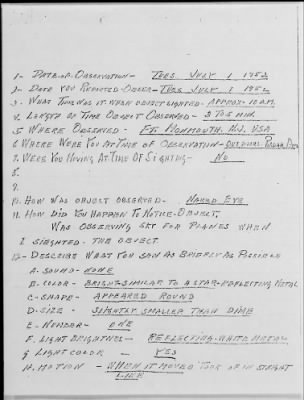 1- DATE-OF-OBSERVATION- TUES. JULY 1 1952
2- DATE YOU REPORTED-OBSER- TUES JULY 1 1952
3- WHAT TIME WAS IT WHEN OBJECT SIGHTED- APPROX. 10 A.M.
4. LENGTH OF TIME OBJECT OBSERVED- 3 TO 5 MIN.
5. WHERE OBSERVED- FT. MONMOUTH. N.J. USA
6 WHERE WERE YOU AT TIME OF OBSERVATION- OUTDOORS
7. WERE YOU MOVING AT TIME OF SIGHTING- NO
8.
9.
10. HOW WAS OBJECT OBSERVED- NAKED EYE
11. HOW DID YOU HAPPEN TO NOTICE-OBJECT.
WAS OBSERVING SKY FOR PLANES WHEN
I SIEGHTED-THE OBJECT.
12- DESCRIBE WHAT YOU SAW AS BRIEFLY AS POSSIBLE
A. SOUND- NONE
B. COLOR- BRIGHT-SIMILAR TO A STAR-REFLECTING METAL
C- SHAPE- APPEARED ROUND
D- SIZE- SLIGHTLY SMALLER THAN DIME
E- NUMBER- ONE
F. LIGHT BRIGHTNES- REFLECTING-WHITE METAL
G LIGHT COLOR- YES
H. MOTION- WHEN IT MOVED TOOK OFF IN STEIGHT
LINE